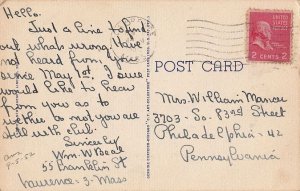 Hello.
Just a line to find
out what wrong. Have
not heard from you
since May 1st. I sure
would like to hear
from you as to
wether to not you are
still with Phil.
Sincerely
Wm. W. Beal
55 Franklin St
Lawrence-3-Mass
POST CARD
UNITED STATES
POSTAGE
2 CENTS 2
Mrs William Marcou
3703-So. 83rd Street
Philadelphia-42
Pennsylvania